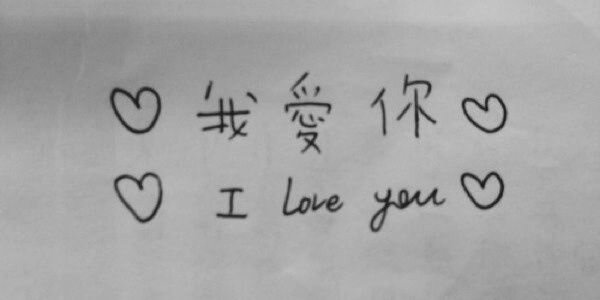 我愛你
I love you